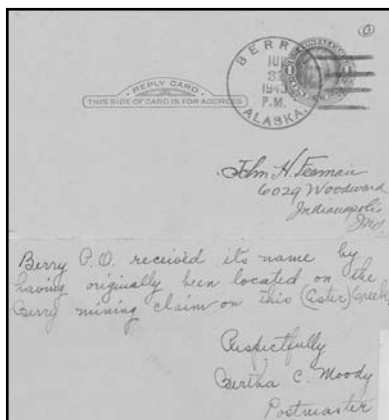 REPLY CARD
THIS SIDE OF CARD IS FOR ADDRESS
BERRY
P.M.
ALASKA.
1
John H.
6029 Woodward
Indianapolis
Ind.
Berry P.O. received its name by
having originally been located on the
Berry mining claim on this (Ester) Creek,
Respectfully
Bertha C. Moody
Postmaster